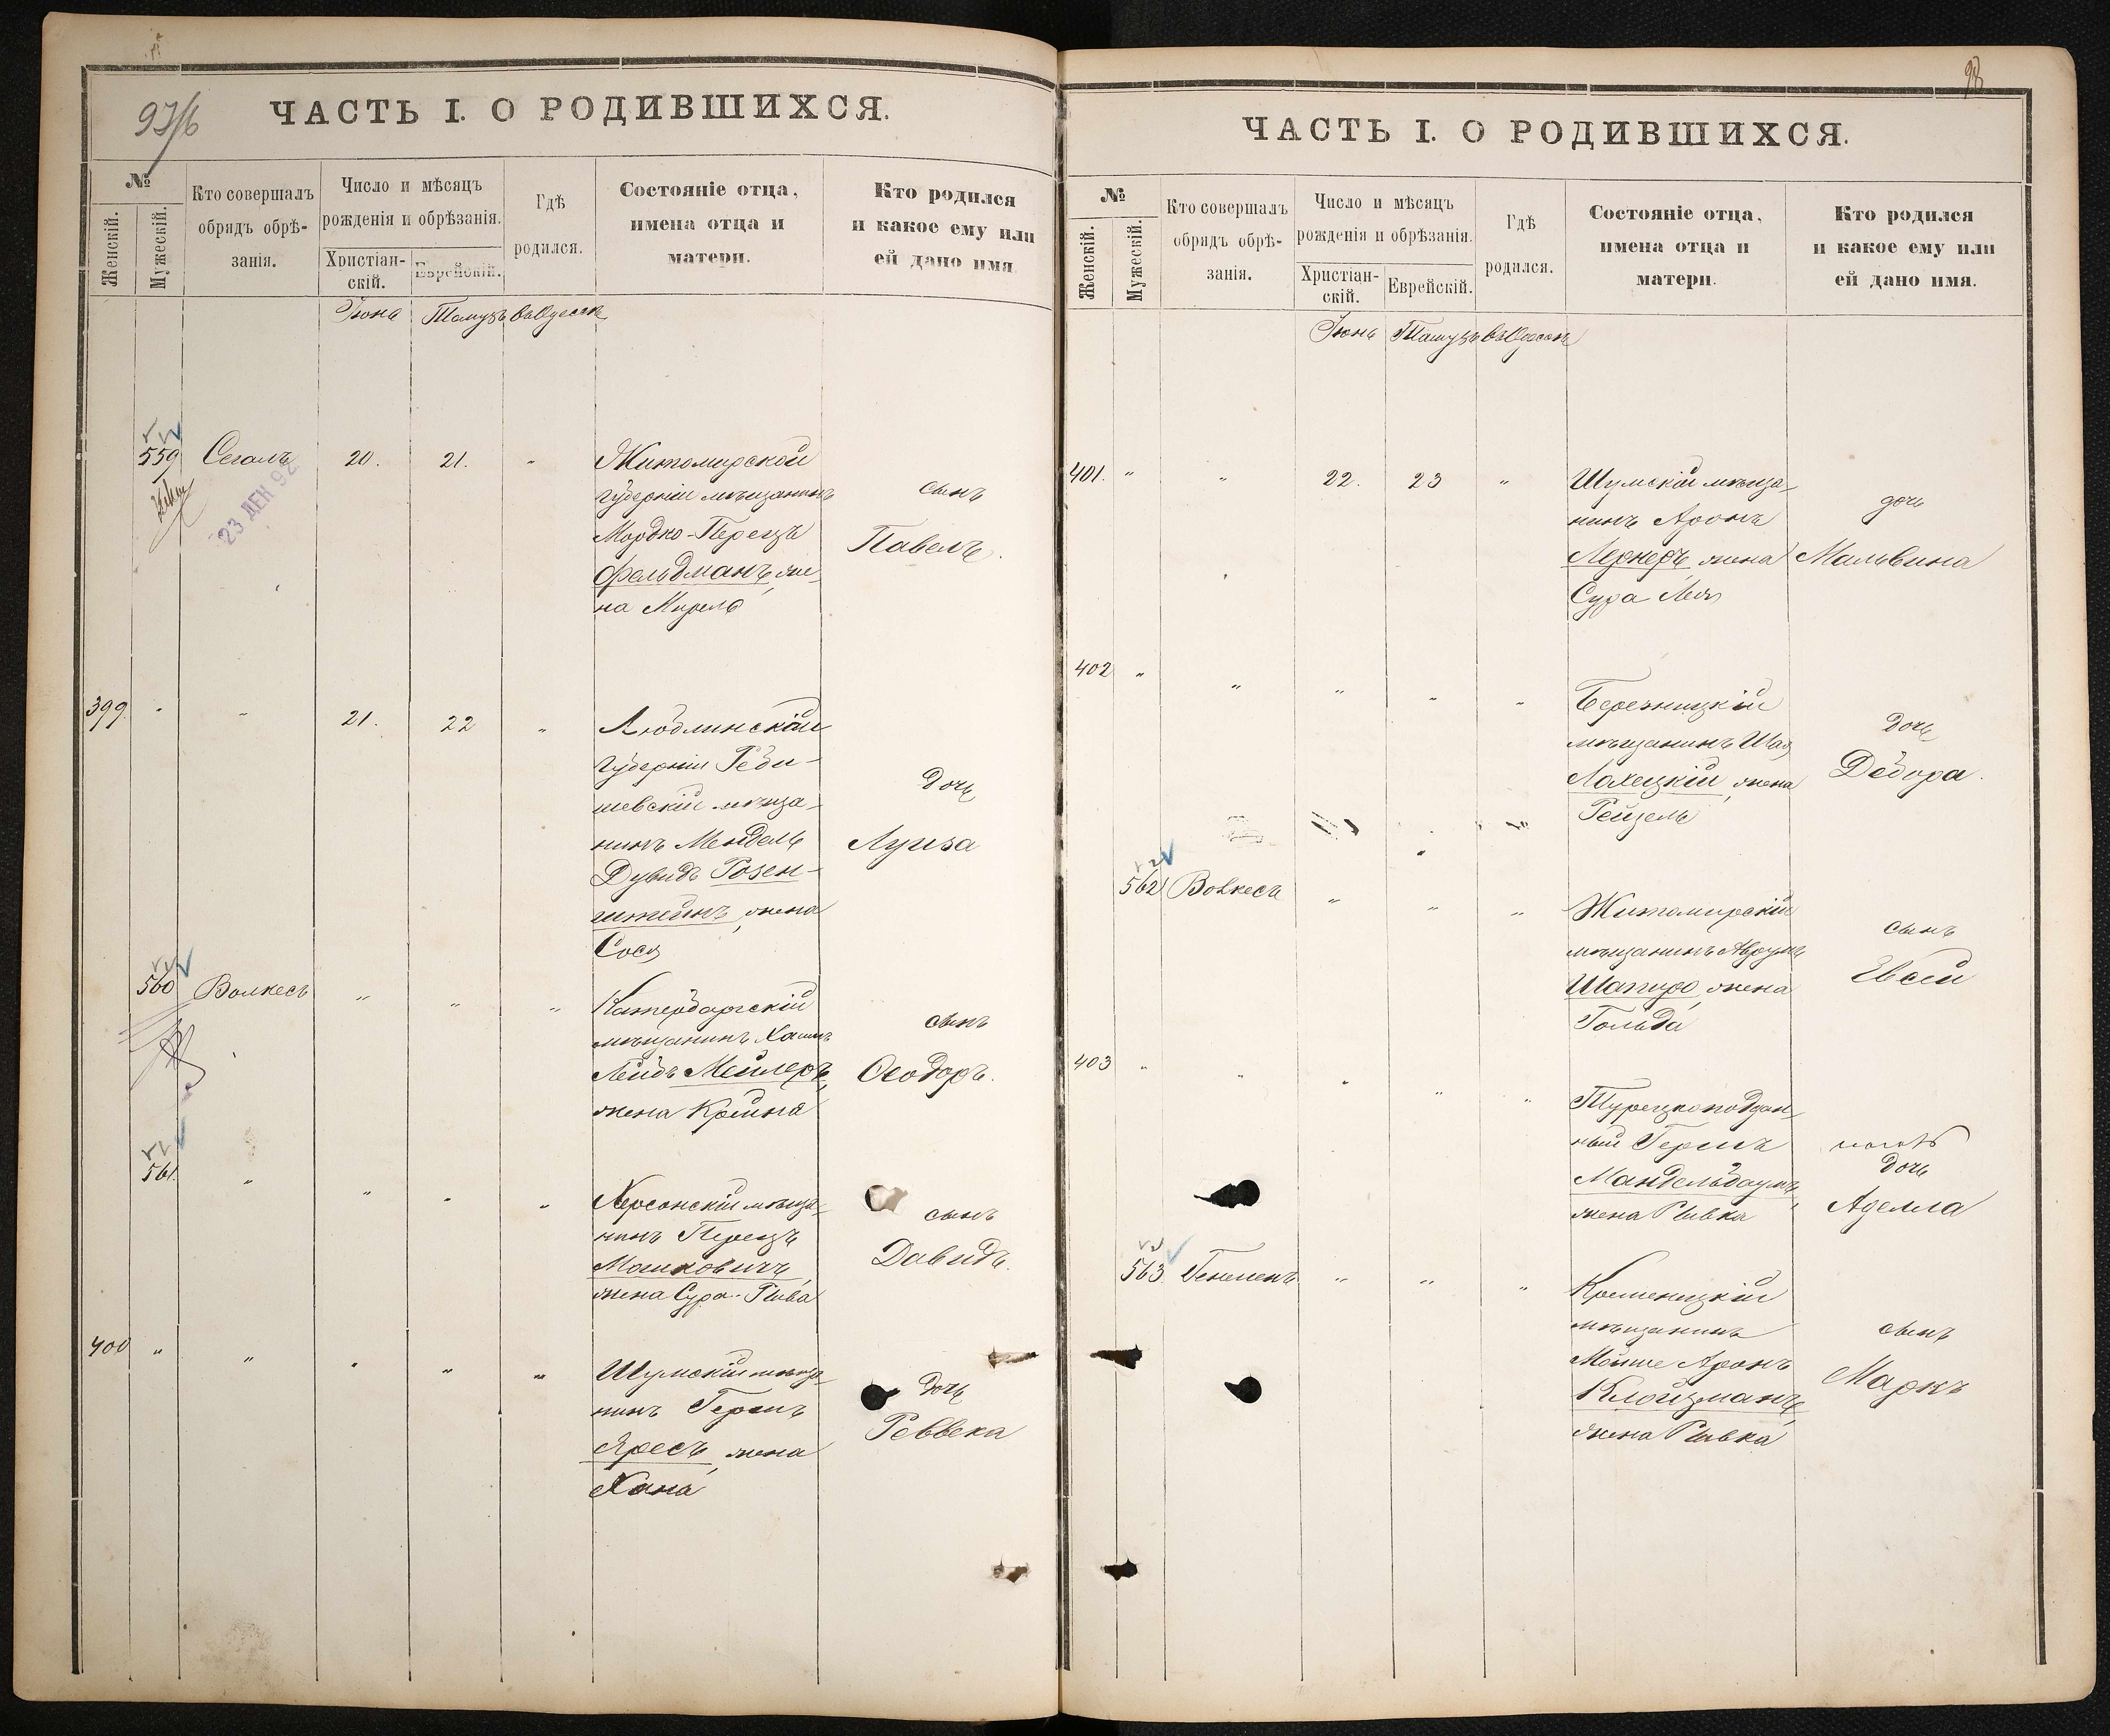 97/6
ЧАСТЬ I. О РОДИВШИХСЯ.
№
Женскій.
Мужескій.
Кто совершалъ
обрядъ обрѣ-
занія.
Число и мѣсяцъ
рожденія и обрѣзанія.
Христіан-
скій.
Еврейскій.
Гдѣ
родился.
Состояніе отца,
имена отца и
матери.
Кто родился
и какое ему или
ей дано имя
Іюня Тамузъ въ Одессѣ
559 Сегалъ 20. 21. „ Житомирской
губерніи мѣщанинъ
Мордко-Перецъ
Фельдманъ, же-
на Мирель
сынъ
Павелъ.
23 ДЕК 92
399. „ „ 21. 22 „ Люблинской
губерніи
шевскій мѣща-
нинъ Мендель
Дувидъ Розен-
штейнъ, жена
Сося
дочь
Луиза
560 Волкесъ „ „ „
мѣщанинъ Хаимъ
Лейбъ Мейлеръ,
жена Крейна
сынъ
Ѳеодоръ.
561. „ „ „ „ Херсонскій мѣща-
нинъ Перецъ
Машковичъ,
жена Сура-Рива
сынъ
Давидъ.
400 „ „ „ „ „ Шумскій мѣща-
нинъ Гершъ
Яресъ, жена
Хана
дочь
Реввека
98
ЧАСТЬ I. О РОДИВШИХСЯ.
№
Женскій.
Мужескій.
Кто совершалъ
обрядъ обрѣ-
занія.
Число и мѣсяцъ
рожденія и обрѣзанія.
Христіан-
скій.
Еврейскій.
Гдѣ
родился.
Состояніе отца,
имена отца и
матери.
Кто родился
и какое ему или
ей дано имя.
Іюнь Тамузъ въ Одессѣ
401. „ „ 22. 23 „ Шумскій мѣща-
нинъ Аронъ
Лернеръ, жена
Сура Лея
дочь
Мальвина
402 „ „ „ „ „ Березницкій
мѣщанинъ Шая
Лохецкій, жена
Рейзель
дочь
Дебора.
562 Волкесъ „ „ „ Житомирскій
мѣщанинъ Аврумъ
Шапиро, жена
Гольда
сынъ
Евсей
403 „ „ „ „ „ Турецкоподдан-
ный Гершъ
Мандельбаумъ,
жена Ривка
дочь
Аделла
563. „ „ „ Кременецкій
мѣщанинъ
Мойше Аронъ
Клойзманъ,
жена Ривка
сынъ
Маркъ